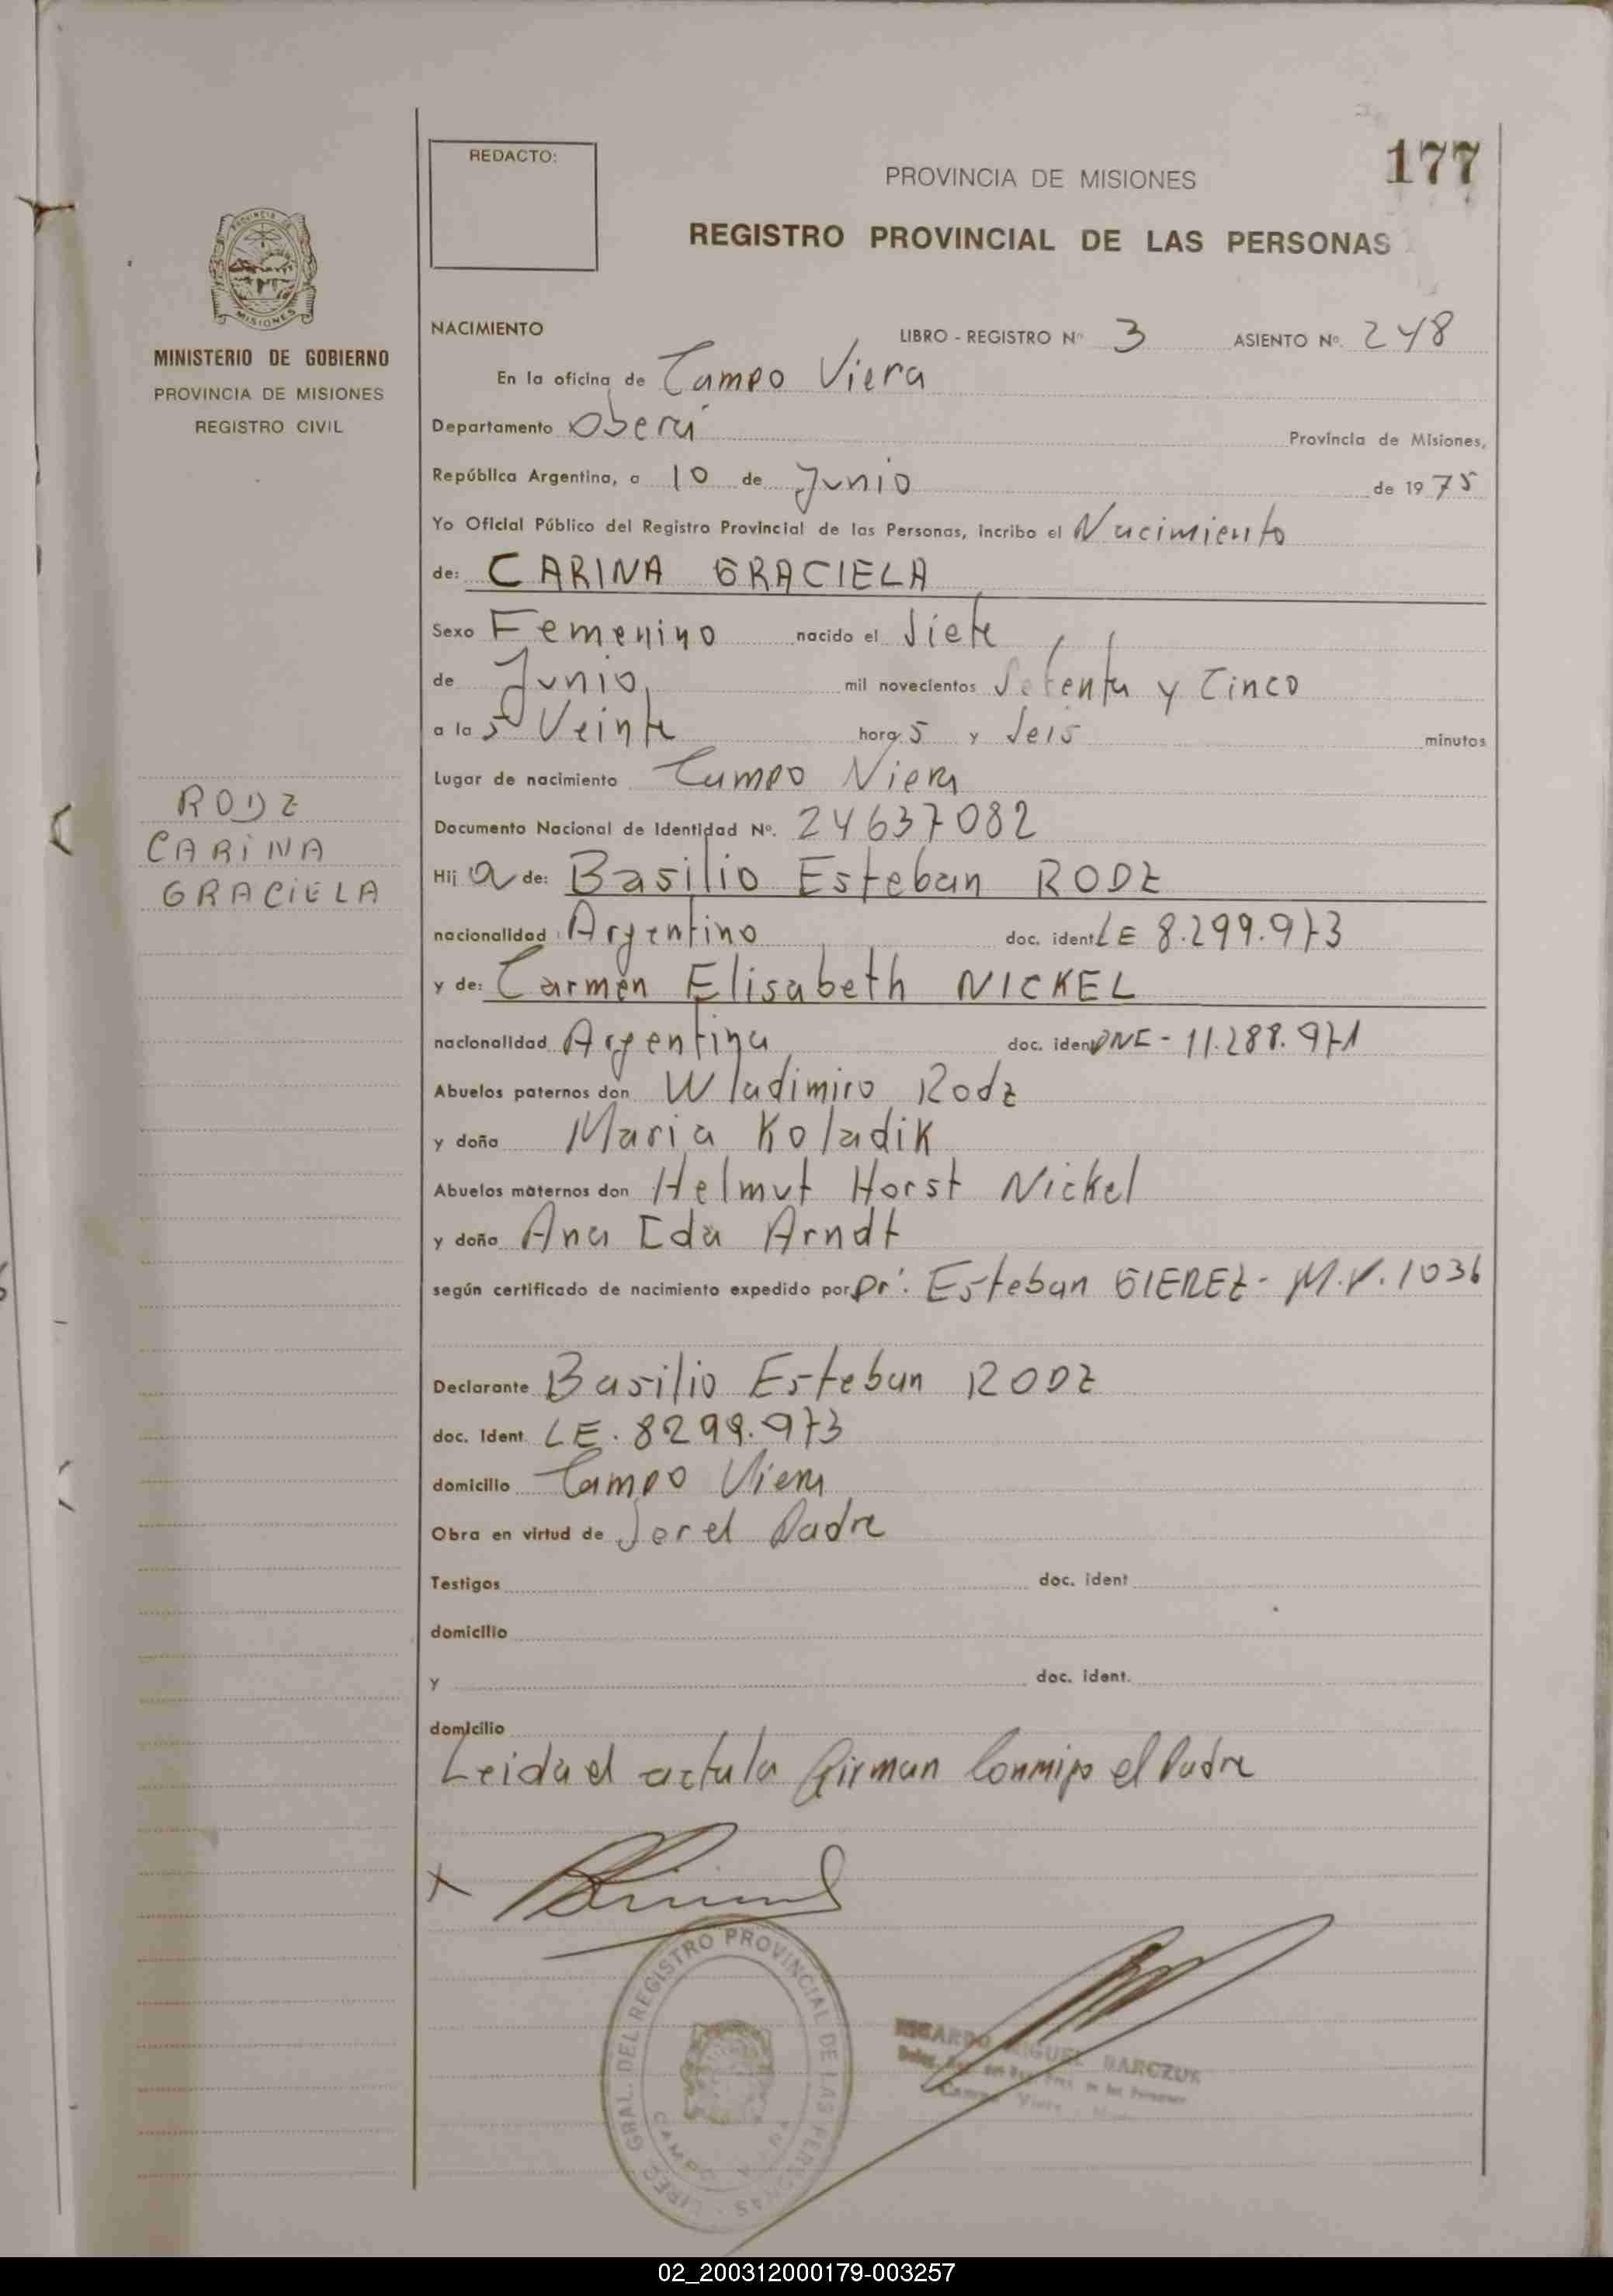 REDACTO:
177
PROVINCIA DE MISIONES
REGISTRO PROVINCIAL DE LAS PERSONAS
PROVINCIA DE
MISIONES
MINISTERIO DE GOBIERNO
PROVINCIA DE MISIONES
REGISTRO CIVIL
RODZ
CARINA
GRACIELA
NACIMIENTO LIBRO - REGISTRO Nº 3 ASIENTO Nº. 248
En la oficina de Campo Viera
Departamento Oberá Provincia de Misiones,
República Argentina, a 10 de Junio de 1975
Yo Oficial Público del Registro Provincial de las Personas, incribo el Nacimiento
de: CARINA GRACIELA
Sexo Femenino nacido el Siete
de Junio, mil novecientos Setenta y Cinco
a la s Veinte hora s y Seis minutos
Lugar de nacimiento Campo Viera
Documento Nacional de Identidad Nº. 24637082
Hij a de: Basilio Esteban RODZ
nacionalidad Argentino doc. ident LE 8.299.973
y de: Carmen Elisabeth NICKEL
nacionalidad Argentina doc. iden DNI - 11.288.971
Abuelos paternos don Wladimiro Rodz
y doña Maria Koladik
Abuelos maternos don Helmut Horst Nickel
y doña Ana Eda Arndt
según certificado de nacimiento expedido por Dr. Esteban GIEREZ - M.P. 1036
Declarante Basilio Esteban RODZ
doc. ident. LE. 8299.973
domicilio Campo Viera
Obra en virtud de Ser el Padre
Testigos doc. ident
domicilio
y doc. ident.
domicilio
Leida el acta la Firman Conmigo el Padre
X
DIREC. GRAL. DEL REGISTRO PROVINCIAL DE LAS PERSONAS
CAMPO VIERA
RICARDO MIGUEL BARCZUK
Campo Viera
02_200312000179-003257